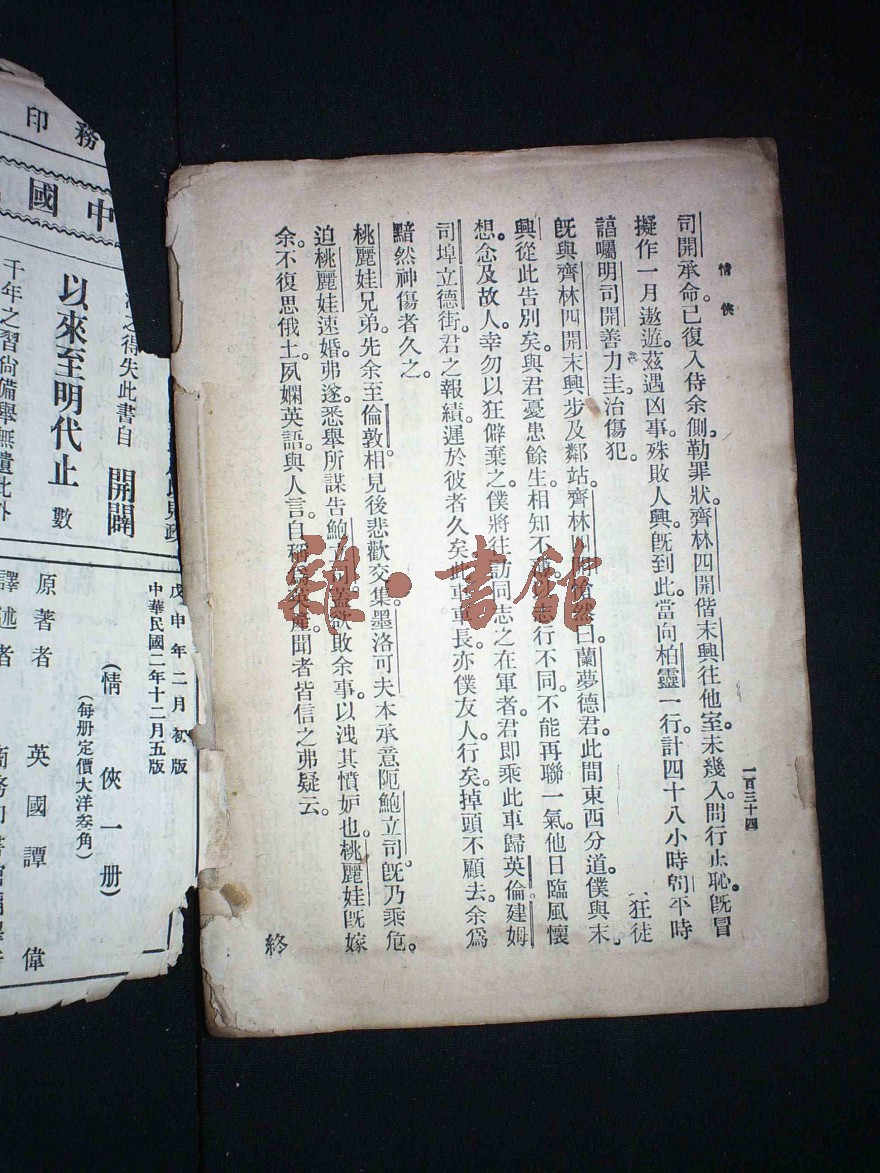 情俠
一百三十四
司開承命。已復入侍余側。勒罪狀。齊林四開偕末興往他室。未幾入。問行止。恥。既冒
擬作一月遨遊。茲遇凶事。殊敗人興。既到此。當向柏靈一行。計四十八小時 平時
諳囑明司開善力圭。治傷犯。 狂徒
既與齊林四開末興步及鄰站。齊林四開愴然曰。蘭夢德君。此間東西分道。僕與末
興從此告別矣。與君憂患餘生。相知不 以志行不同。不能再聯一氣。他日臨風懷
想。念及故人。幸勿以狂僻棄之。僕將往訪同志之在軍者。君即乘此車歸英倫建姆
司埠立德街。君之報績。遲於彼者久矣。此車車長。亦僕友人。行矣。掉頭不顧去。余爲
黯然神傷者久之。
桃麗娃兄弟。先余至倫敦。相見後悲歡交集。墨洛可夫本承意阨鮑立司。既乃乘危
迫桃麗娃速婚。弗遂。悉舉所謀告鮑立司。蓋欲敗余事以洩其憤妒也。桃麗娃既嫁
余。不復思俄土。夙嫻英語。與人言。自稱 英產。聞者皆信之弗疑云。
終
雜·書館
務印
中國
之得失此書自開闢
以來至明代止數
千年之習尚備舉無遺此外
戊申年二月初版
中華民國二年十二月五版
(情俠一册)
(每册定價大洋叁角)
原著者 英國譚偉
譯述者 商務印書館編譯所